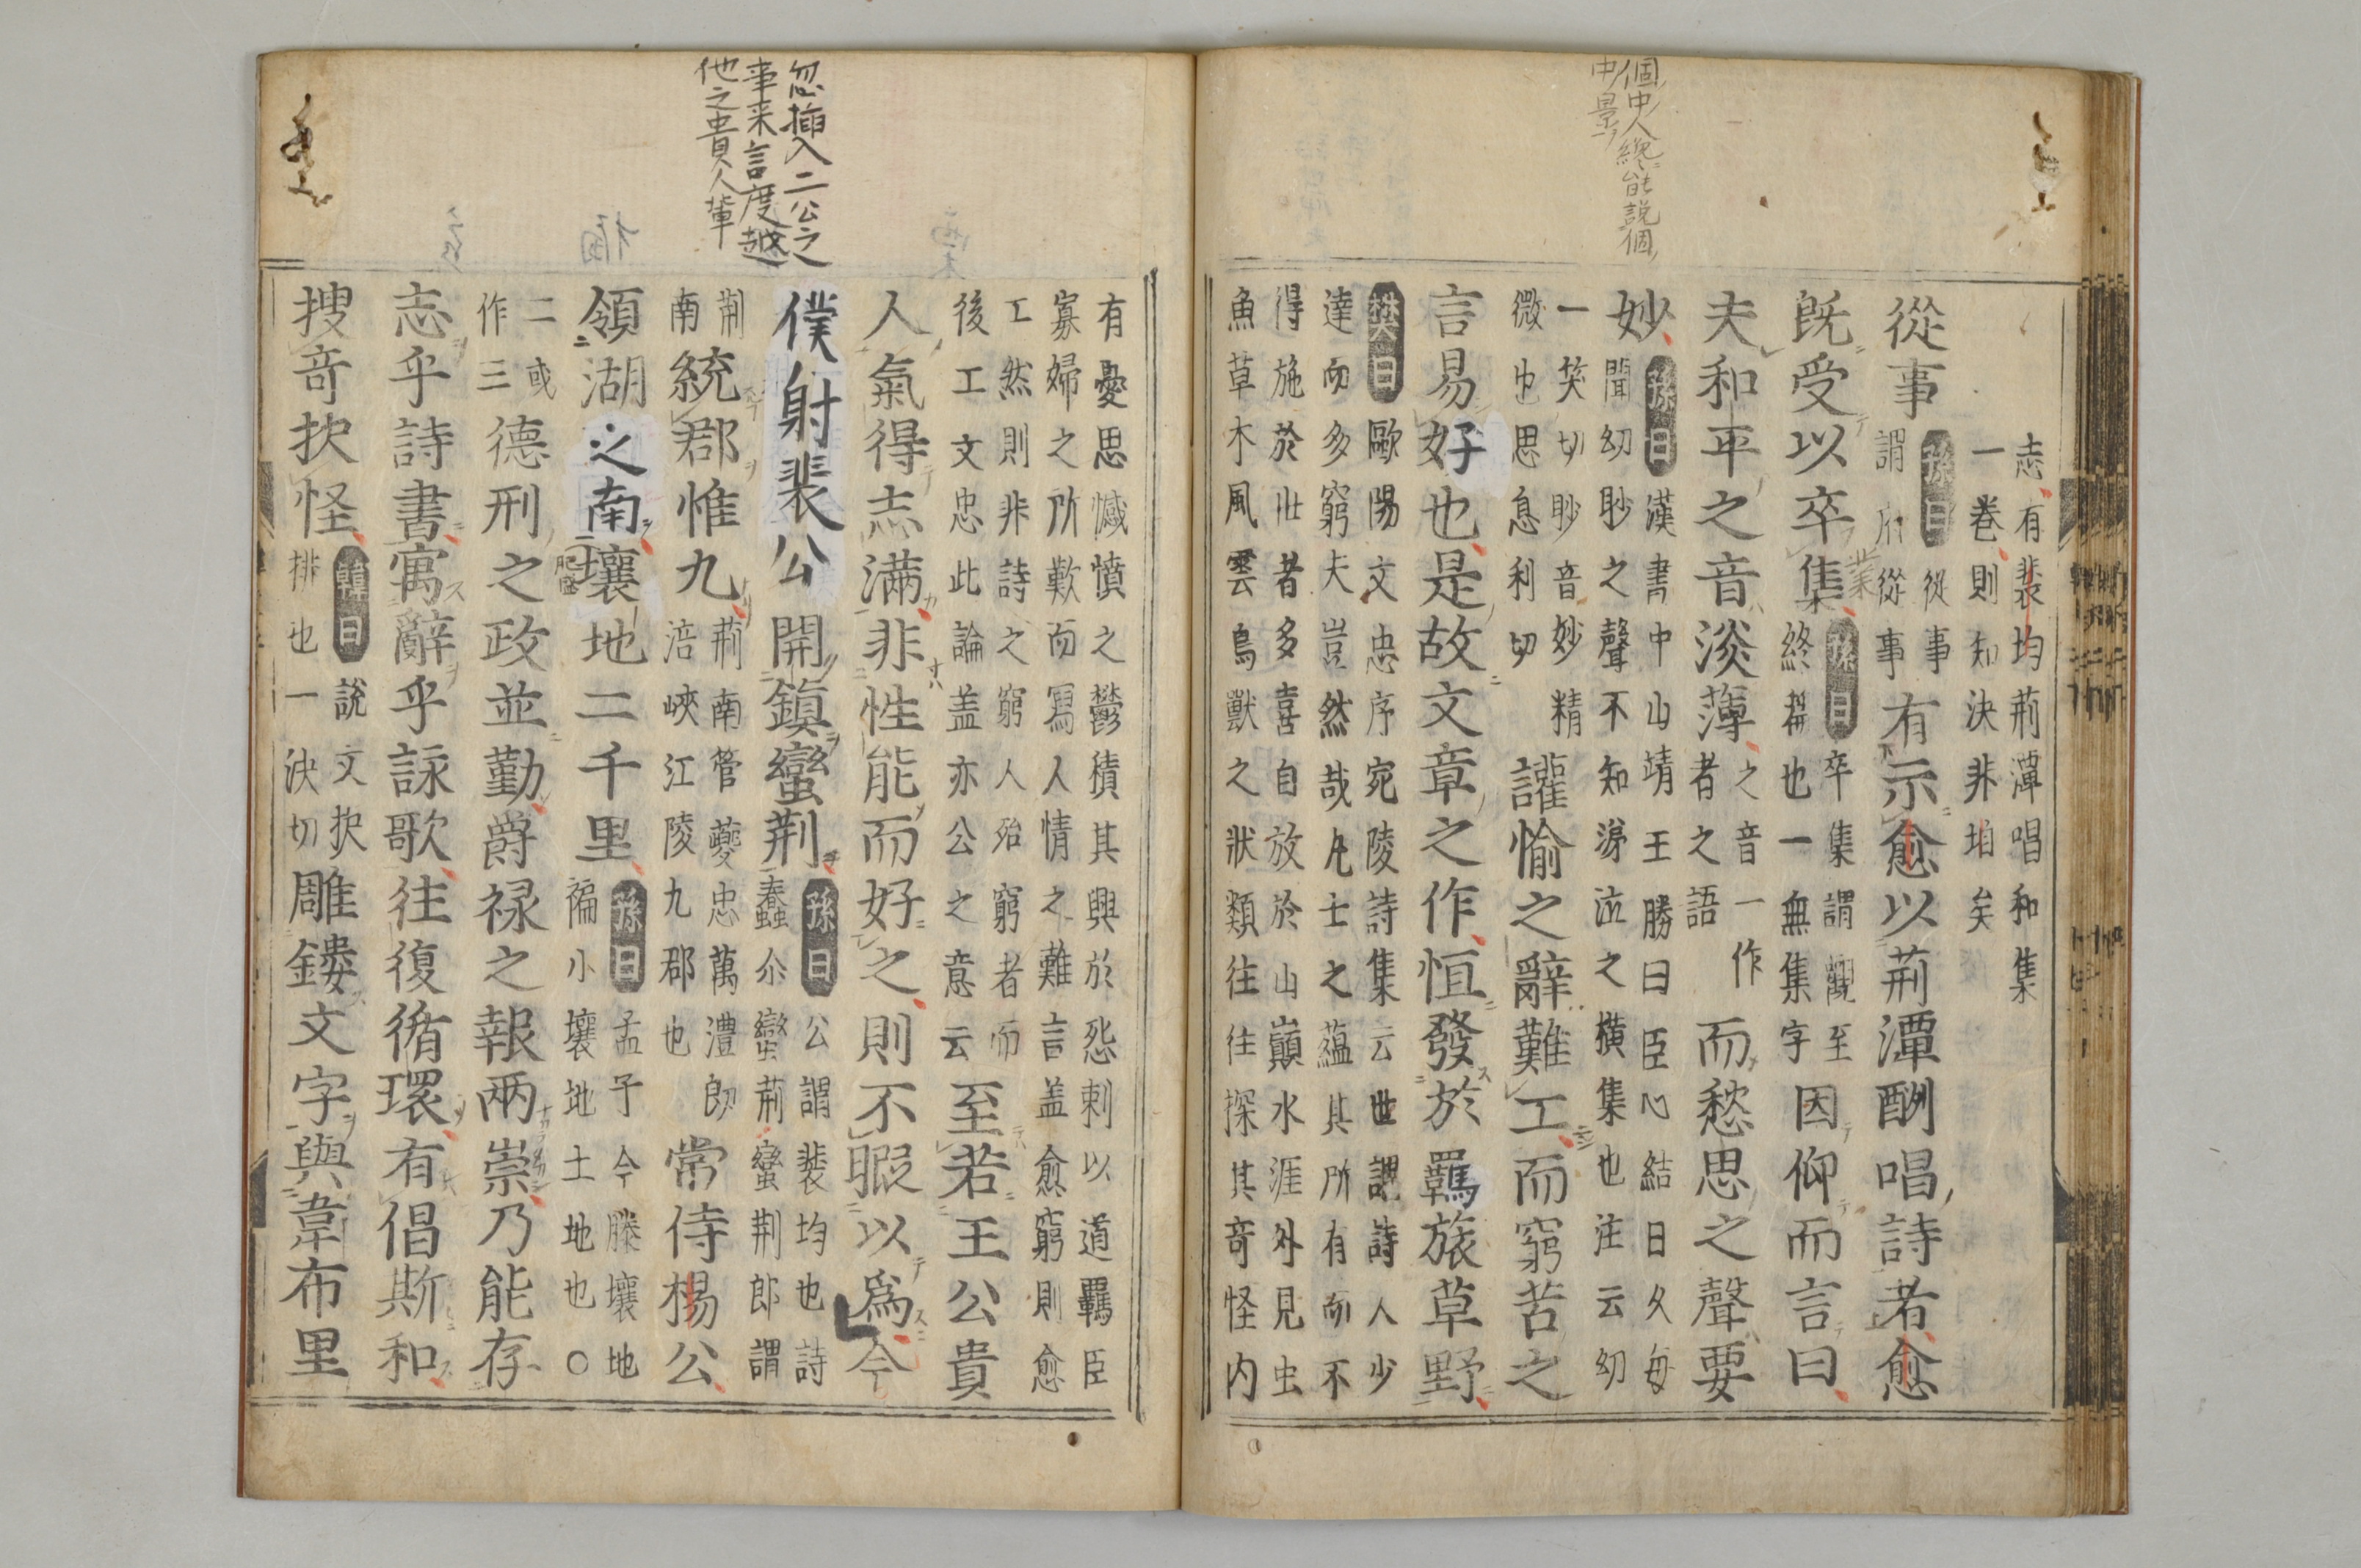 個中人纔能説個
中景
志有裴均荊潭唱和集
一卷則知決非垍矣
從事
孫曰從事
謂府從事
有示愈以荊潭酬唱詩者愈
既受以卒業集
孫曰卒集謂觀至
終卷也一無集字
因仰而言曰
夫和平之音淡薄
之音一作
者之語
而愁思之聲要
妙
孫曰漢書中山靖王勝曰臣心結日久每
聞幼眇之聲不知涕泣之橫集也注云幼
一笑切眇音妙精
微也思息利切
讙愉之辭難工而窮苦之
言易好也是故文章之作恒發於羈旅草野
樊曰歐陽文忠序宛陵詩集云世謂詩人少
達而多窮夫豈然哉凡士之蘊其所有而不
得施於壯者多喜自放於山巔水涯外見虫
魚草木風雲鳥獸之狀類往往探其奇怪内
忽插入二公之
事来言度越
他之貴人輩
有憂思憾憤之鬱積其興於怨刺以道羈臣
寡婦之所歎而寫人情之難言盖愈窮則愈
工然則非詩之窮人殆窮者而
後工文忠此論盖亦公之意云
至若王公貴
人氣得志满非性能而好之則不暇以爲今
僕射裴公開鎮蠻荊
孫曰公謂裴均也詩
蠢尒蠻荊蠻荆郎謂
荊
南
統郡惟九
荊南管夔忠萬澧朗
涪峽江陵九郡也
常侍楊公
領湖之南壤地二千里
孫曰孟子今滕壤地
褊小壤地土地也〇
二或
作三
德刑之政並勤爵禄之報兩崇乃能存
志乎詩書寓辭乎詠歌往復循環有倡斯和
搜奇抉怪
韓曰説文抉
排也一決切
雕鏤文字與韋布里